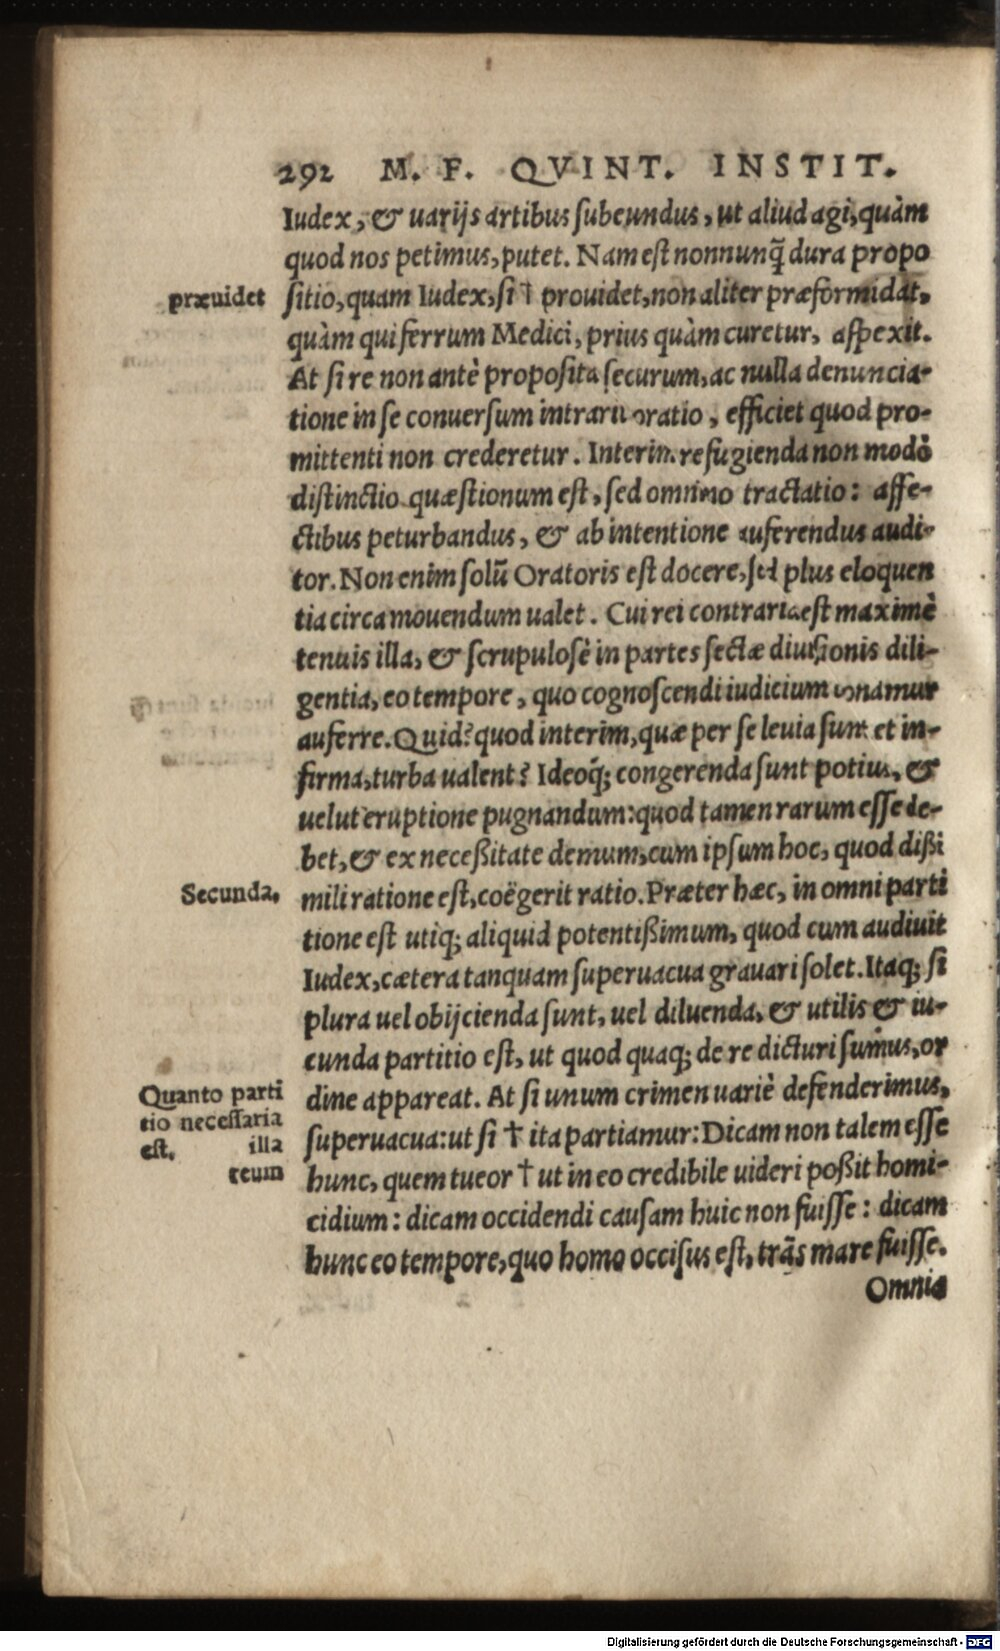 292 M. F. QVINT. INSTIT.
Iudex, & uarijs artibus subeundus, ut aliud agi, quàm
quod nos petimus, putet. Nam est nonnunq̃ dura propo
præuidet
sitio, quam Iudex, si † prouidet, non aliter præformidat,
quàm qui ferrum Medici, prius quàm curetur, aspexit.
At si re non antè proposita securum, ac nulla denuncia-
tione in se conuersum intrarit oratio, efficiet quod pro-
mittenti non crederetur. Interim refugienda non modò
distinctio quæstionum est, sed omnino tractatio: affe-
ctibus peturbandus, & ab intentione auferendus audi-
tor. Non enim solũ Oratoris est docere, sed plus eloquen
tia circa mouendum ualet. Cui rei contraria est maximè
tenuis illa, & scrupulosè in partes sectæ diuisionis dili-
gentia, eo tempore, quo cognoscendi iudicium conamur
auferre. Quid? quod interim, quæ per se leuia sunt et in-
firma, turba ualent? Ideoq; congerenda sunt potius, &
uelut eruptione pugnandum: quod tamen rarum esse de-
bet, & ex neceßitate demum, cum ipsum hoc, quod dißi
Secunda,
mili ratione est, coëgerit ratio. Præter hæc, in omni parti
tione est utiq; aliquid potentißimum, quod cum audiuit
Iudex, cætera tanquam superuacua grauari solet. Itaq; si
plura uel obijcienda sunt, uel diluenda, & utilis & iu-
cunda partitio est, ut quod quaq; de re dicturi sumus, or
Quanto parti
tio necessaria
est.
dine appareat. At si unum crimen uariè defenderimus,
illa
superuacua: ut si † ita partiamur: Dicam non talem esse
reum
hunc, quem tueor † ut in eo credibile uideri poßit homi-
cidium: dicam occidendi causam huic non fuisse: dicam
hunc eo tempore, quo homo occisus est, trãs mare fuisse.
Omnia
Digitalisierung gefördert durch die Deutsche Forschungsgemeinschaft - DFG